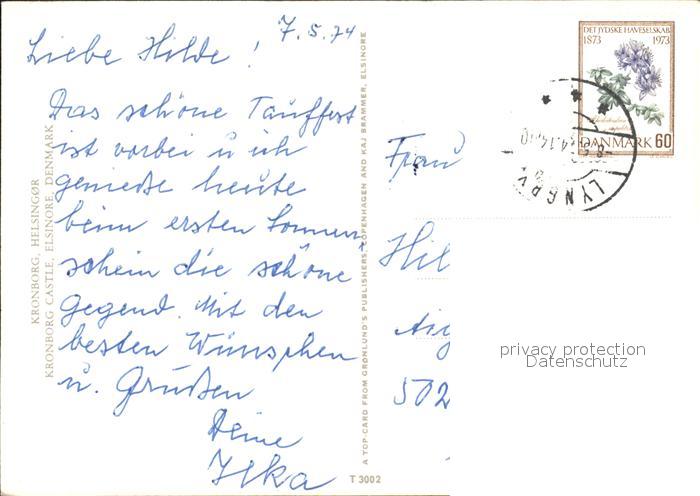 7.5.74
Liebe Hilde!
Das schöne Tauffest
ist vorbei u ich
genieße heute
beim ersten Sonnen
schein die schöne
Gegend. Mit den
besten Wünschen
u. Grüßen
Deine
Ilka
KRONBORG, HELSINGØR
KRONBORG CASTLE, ELSINORE, DENMARK
A TOP-CARD FROM GRØNLUND'S PUBLISHERS, COPENHAGEN AND KAJ BRAMMER, ELSINORE
T 3002
DET JYDSKE HAVESELSKAB
1873 1973
DANMARK 60
LYNGBY
Frau
Hil
502
privacy protection
Datenschutz